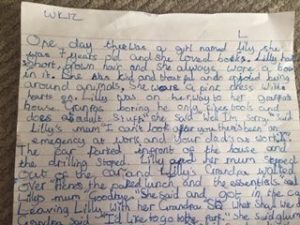 WK12
L
One day there was a girl named Lilly she
was 7 years old and she loved books. Lilly had
short, brown hair and she always wore a bow
in it. She was kind and and enjoyed being
around animals. She wore a pink dress with
hearts on. Lilly was on her way to her grandpa's
house Grandpa's boring he only likes tools and
does adult stuff" she said Well I'm Sorry," said
Lilly's mum I can't look after you there's been an
emergency at work and your dad's at work."
The car parked infront of the house and
the drilling stoped. Lilly and her mum stepped
out of the car and Lilly's Grandpa walked
over Here's the packed lunch and the essentials said
Lilly's mum Goodbye" She said and got in the car
Leaving Lilly With her Grandpa So what shall
Grandpa said "I'd like to go to the park," she said glum